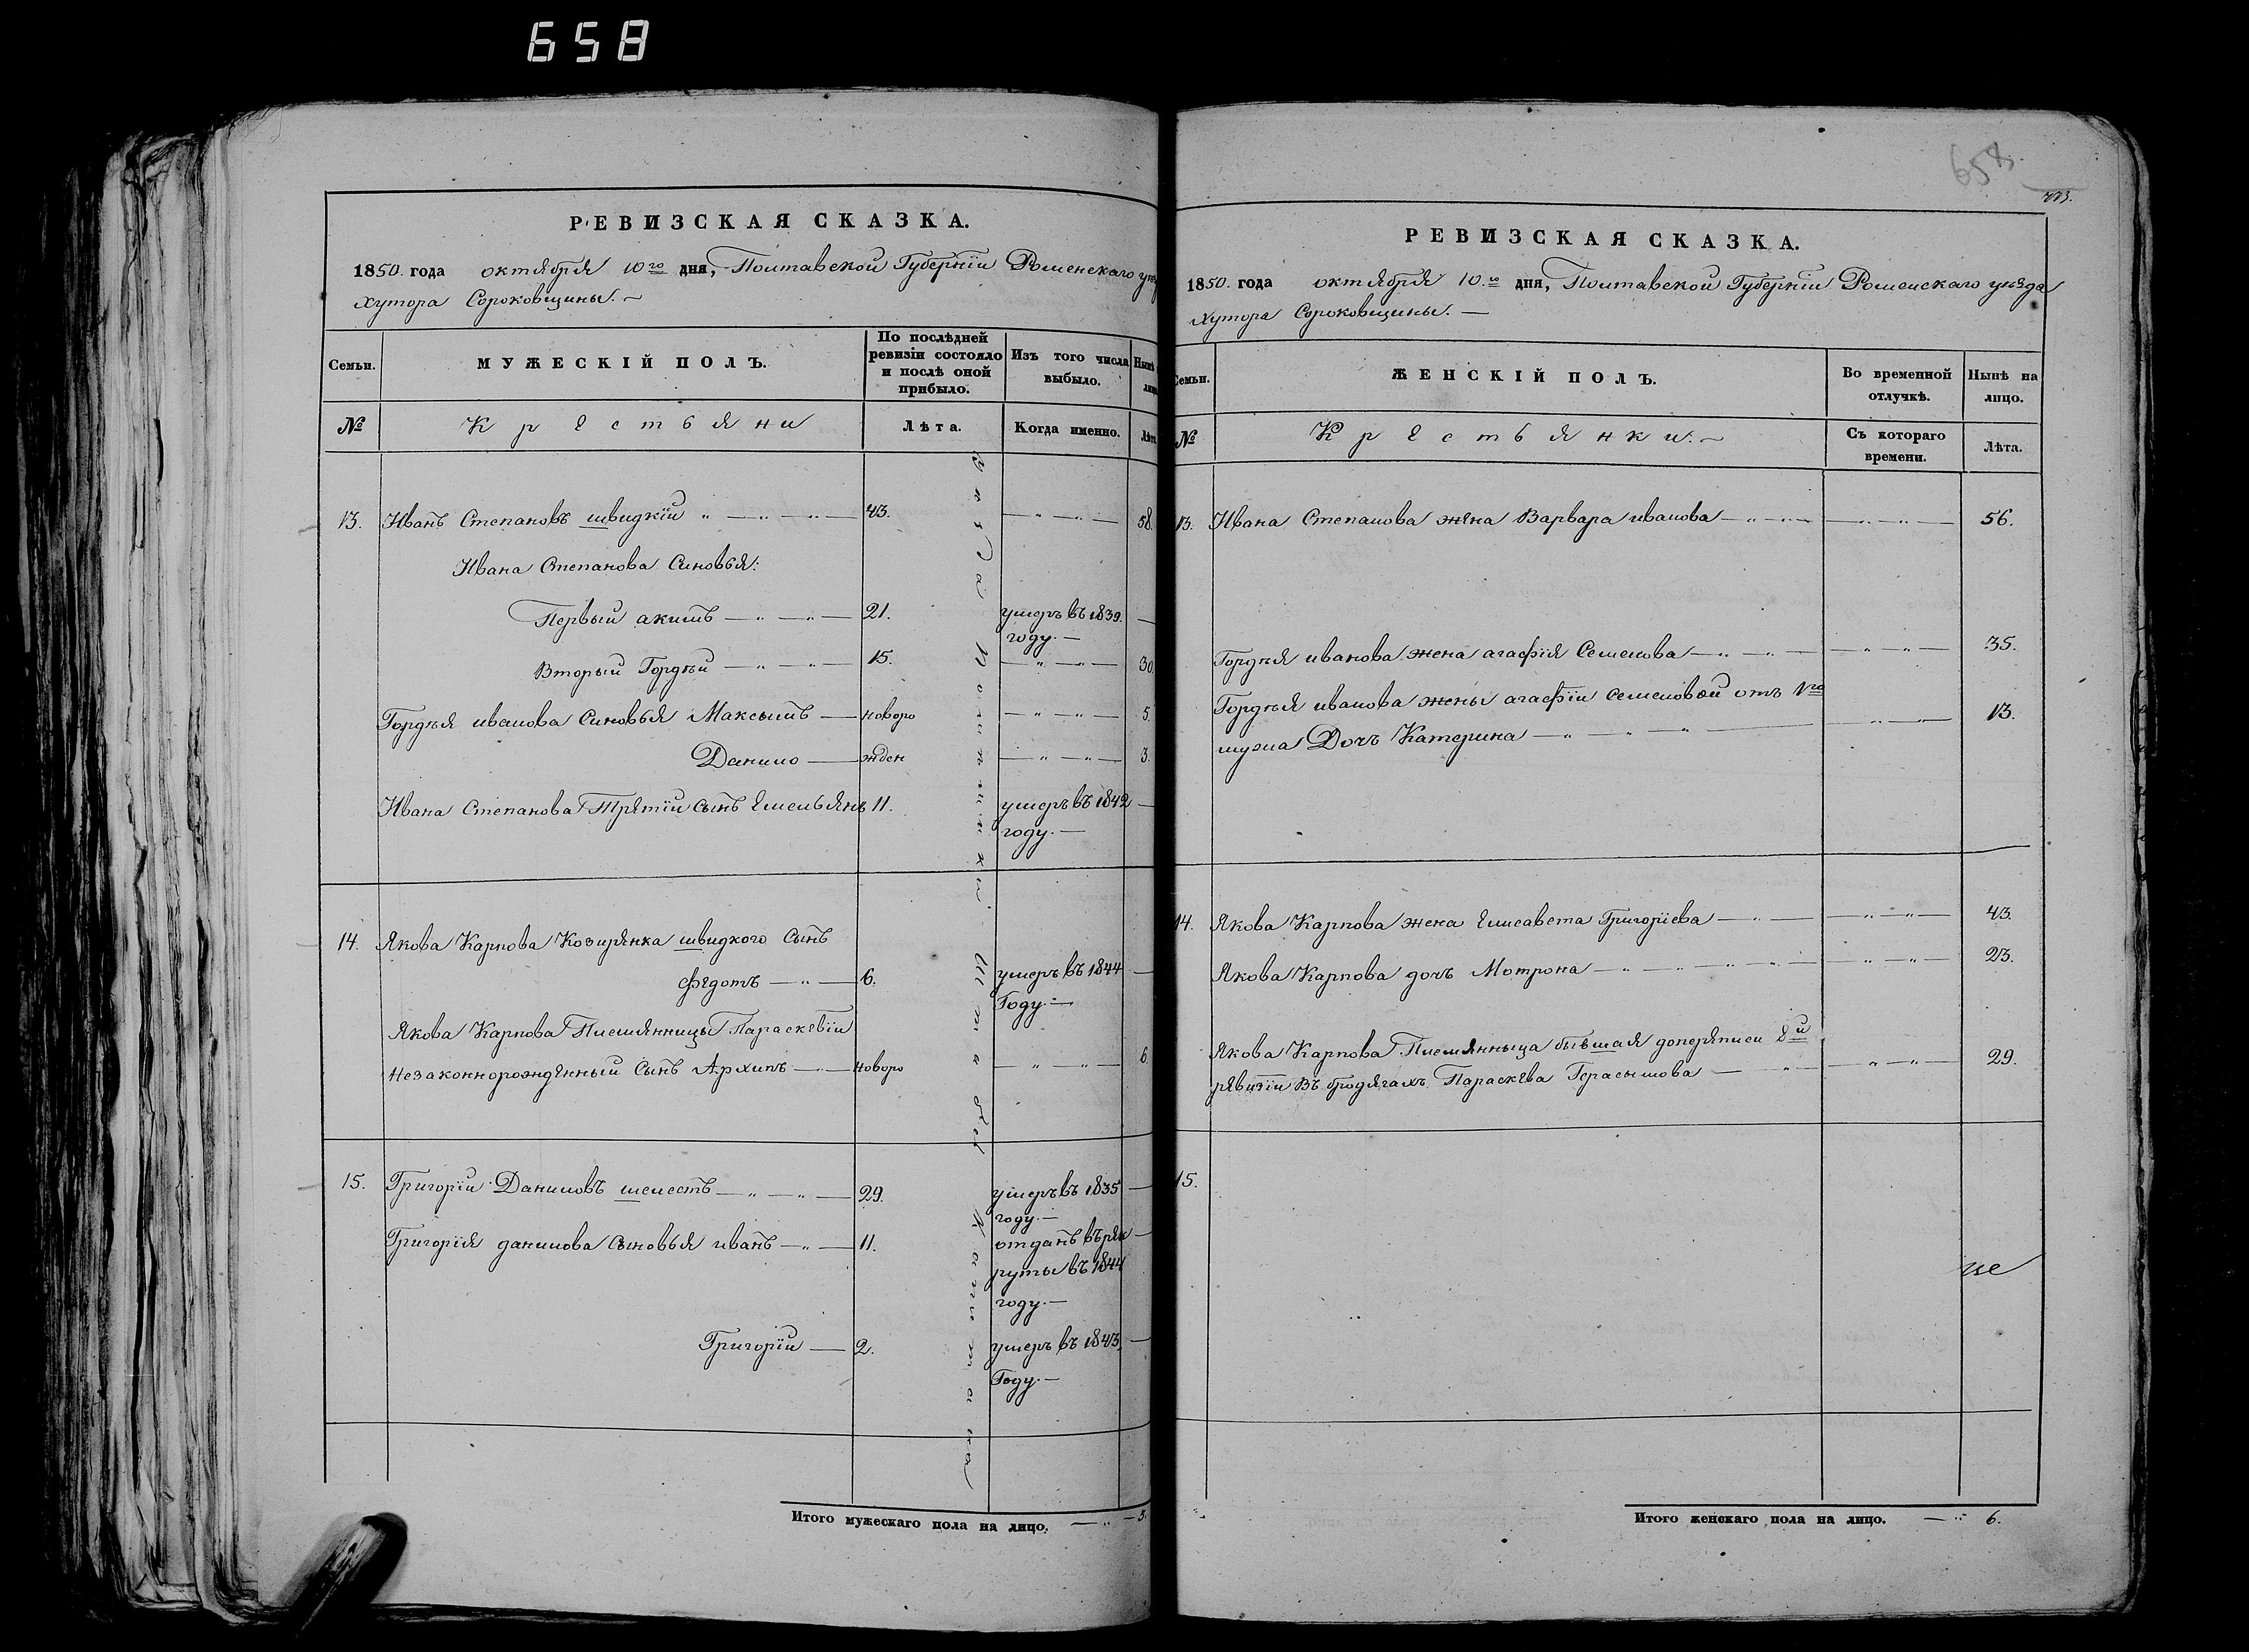 658
РЕВИЗСКАЯ СКАЗКА.
1850. года октября 10го дня, Полтавской Губерніи Роменскаго уез
хутора Сороковщины.
Семьи.
МУЖЕСКІЙ ПОЛЪ.
По послѣдней ревизіи состояло и послѣ оной прибыло.
Изъ того числа выбыло.
Нынѣ
лиц
№
Крестьяни
Лѣта.
Когда именно.
Лѣт
13. Иванъ Степановъ швидкій 43. 58.
Ивана Степанова Синовья:
Первый акимъ 21. умеръ въ 1839. году.
Вторый Гордѣй 15. 30.
Гордѣя иванова Синовья Максымъ новоро 5.
Данило жден 3.
Ивана Степанова Третій сынъ Емельянъ 11. умеръ въ 1842 году.
14. Якова Карпова Козирянка швидкого Сынъ
Федотъ 6. умеръ въ 1844 Году.
Якова Карпова Племянницы Параскевіи
незаконнорожденный Сынъ Архипъ новоро 6.
15. Григорій Даниловъ шелестъ 29. умеръ въ 1835 году.
Григорія данилова Сыновья иванъ 11. отданъ въ рек
руты въ 1844
году.
Григорій 2. умеръ въ 1843, Году.
Итого мужескаго пола на лицо. 3.
658.
РЕВИЗСКАЯ СКАЗКА.
1850. года октября 10.го дня, Полтавской Губерніи Роменскаго уезда
Хутора Сороковщины.
Семьи.
ЖЕНСКІЙ ПОЛЪ.
Во временной отлучкѣ.
Нынѣ на лицо.
№
Крестьянки.
Съ котораго времени.
Лѣта.
13. Ивана Степанова жена Варвара иванова 56.
Гордѣя иванова жена агафія Семенова 35.
Гордѣя иванова жены агафіи Семеновой отъ 1го
мужа Дочъ Катерина 13.
14. Якова Карпова жена Елисавета Григоріева 43.
Якова Карпова дочъ Мотрона 23.
Якова Карпова Племянныца бывшая доперяписи 8й
ревизіи въ бродягахъ Параскева Герасымова 29.
15.
Итого женскаго пола на лицо. 6.